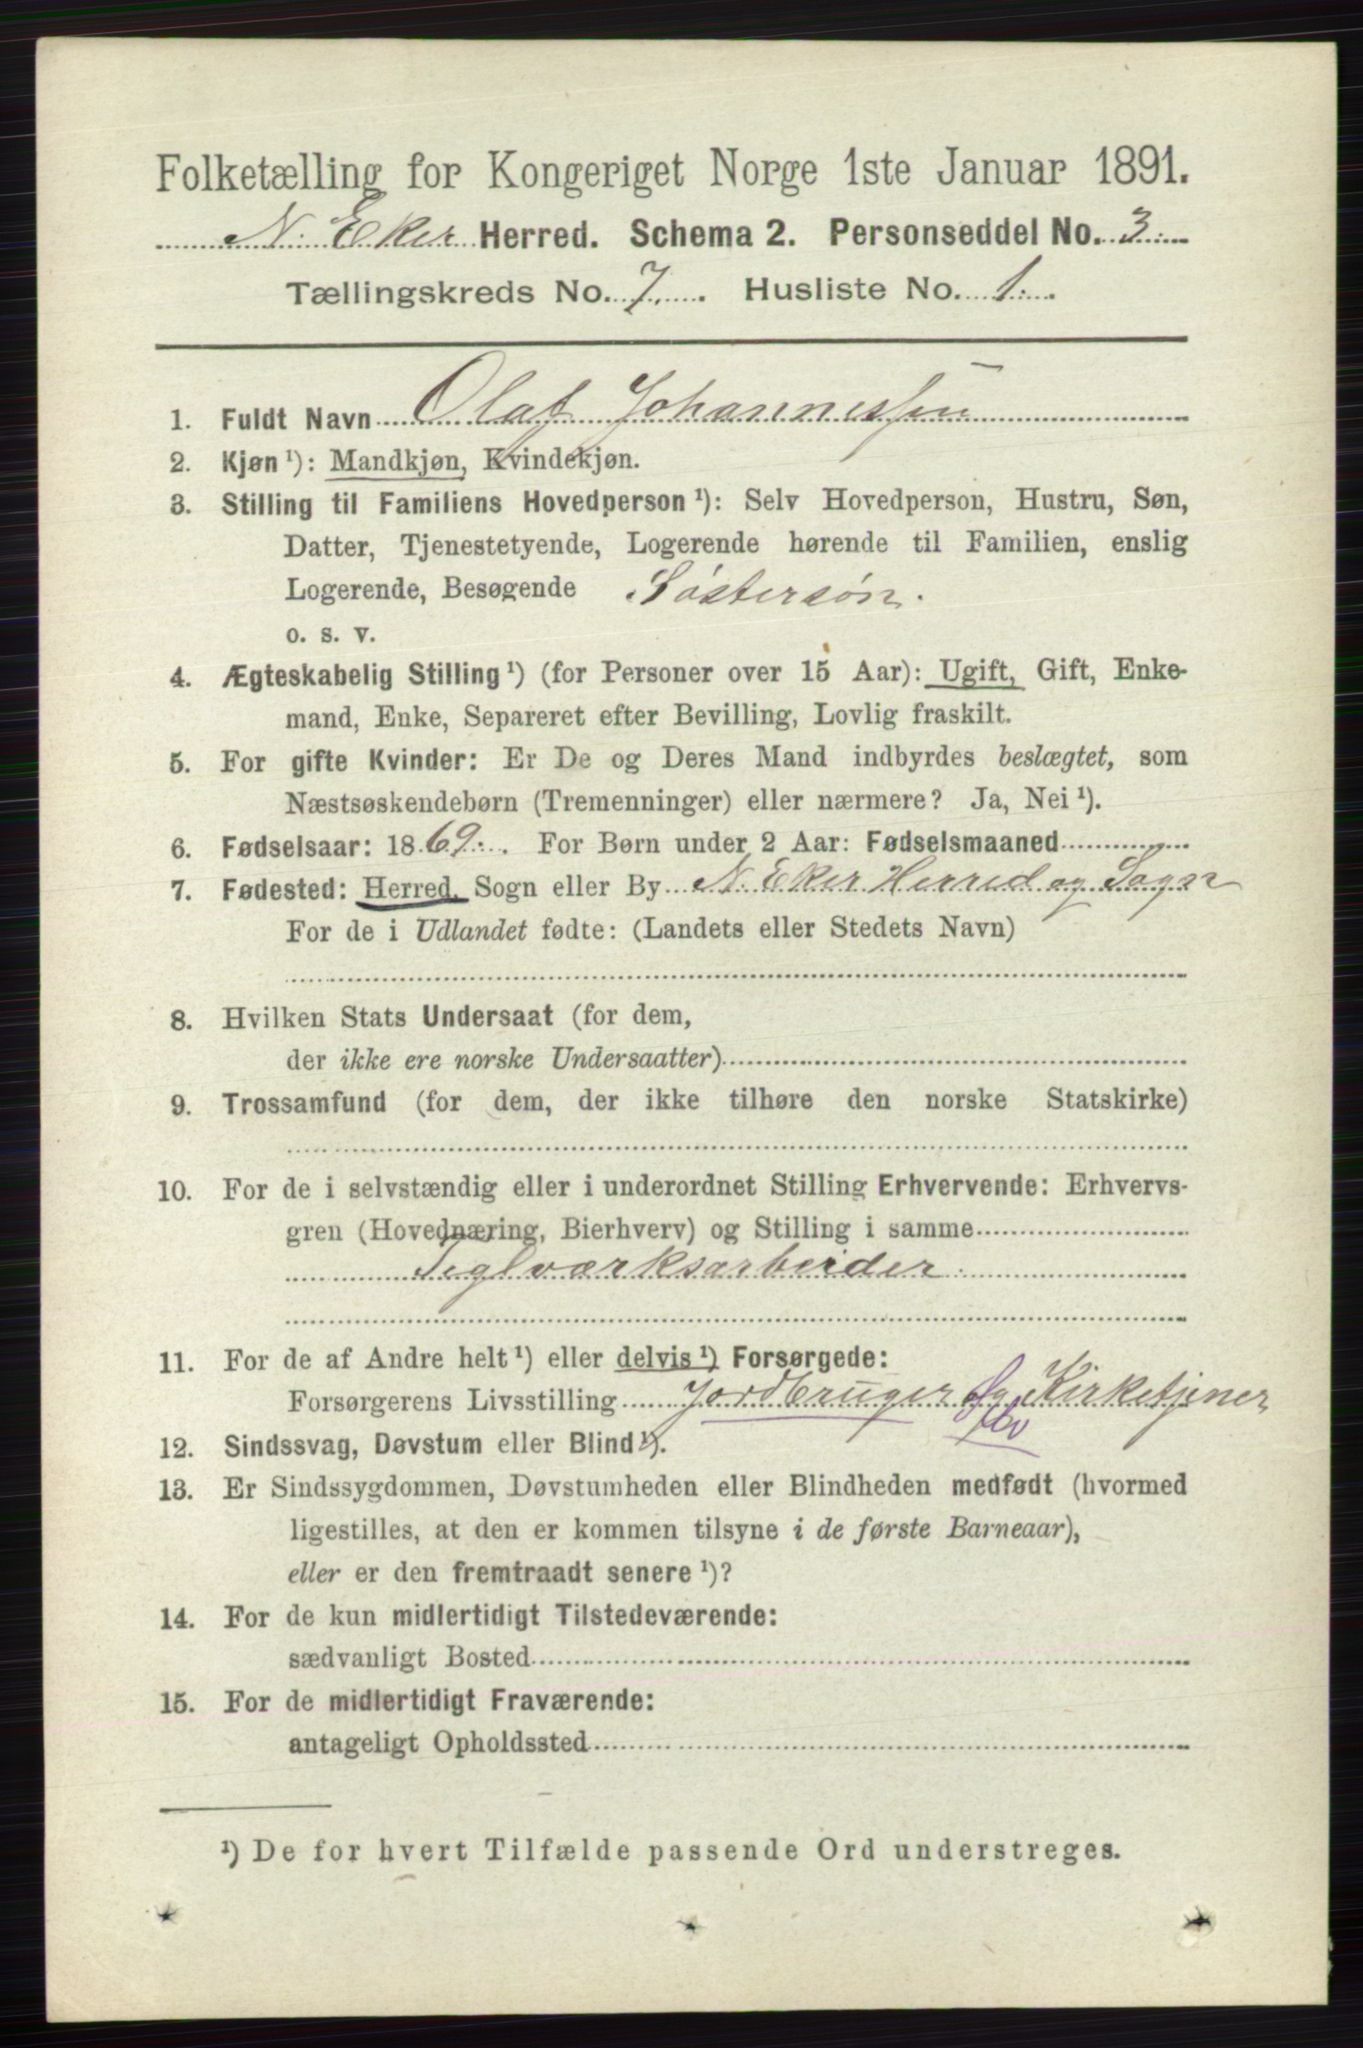 Folketælling for Kongeriget Norge 1ste Januar 1891.
N. Eker Herred. Schema 2. Personseddel No. 3.
Tællingskreds No. 7. Husliste No. 1.
1. Fuldt Navn Olaf Johannessen
2. Kjøn¹): Mandkjøn, Kvindekjøn.
3. Stilling til Familiens Hovedperson¹): Selv Hovedperson, Hustru, Søn,
Datter, Tjenestetyende, Logerende hørende til Familien, enslig
Logerende, Besøgende Søstersøn.
o. s. v.
4. Ægteskabelig Stilling¹) (for Personer over 15 Aar): Ugift, Gift, Enke-
mand, Enke, Separeret efter Bevilling, Lovlig fraskilt.
5. For gifte Kvinder: Er De og Deres Mand indbyrdes beslægtet, som
Næstsøskendebørn (Tremenninger) eller nærmere? Ja, Nei¹).
6. Fødselsaar: 1869. For Børn under 2 Aar: Fødselsmaaned
7. Fødested: Herred, Sogn eller By N. Eker Herred og Sogn
For de i Udlandet fødte: (Landets eller Stedets Navn)
8. Hvilken Stats Undersaat (for dem,
der ikke ere norske Undersaatter)
9. Trossamfund (for dem, der ikke tilhøre den norske Statskirke)
10. For de i selvstændig eller i underordnet Stilling Erhvervende: Erhvervs-
gren (Hovednæring, Bierhverv) og Stilling i samme
Teglværksarbeider.
11. For de af Andre helt¹) eller delvis¹) Forsørgede:
Forsørgerens Livsstilling Jordbruger og Kirketjener
12. Sindssvag, Døvstum eller Blind¹).
13. Er Sindssygdommen, Døvstumheden eller Blindheden medfødt (hvormed
ligestilles, at den er kommen tilsyne i de første Barneaar),
eller er den fremtraadt senere¹)?
14. For de kun midlertidigt Tilstedeværende:
sædvanligt Bosted
15. For de midlertidigt Fraværende:
antageligt Opholdssted
¹) De for hvert Tilfælde passende Ord understreges.